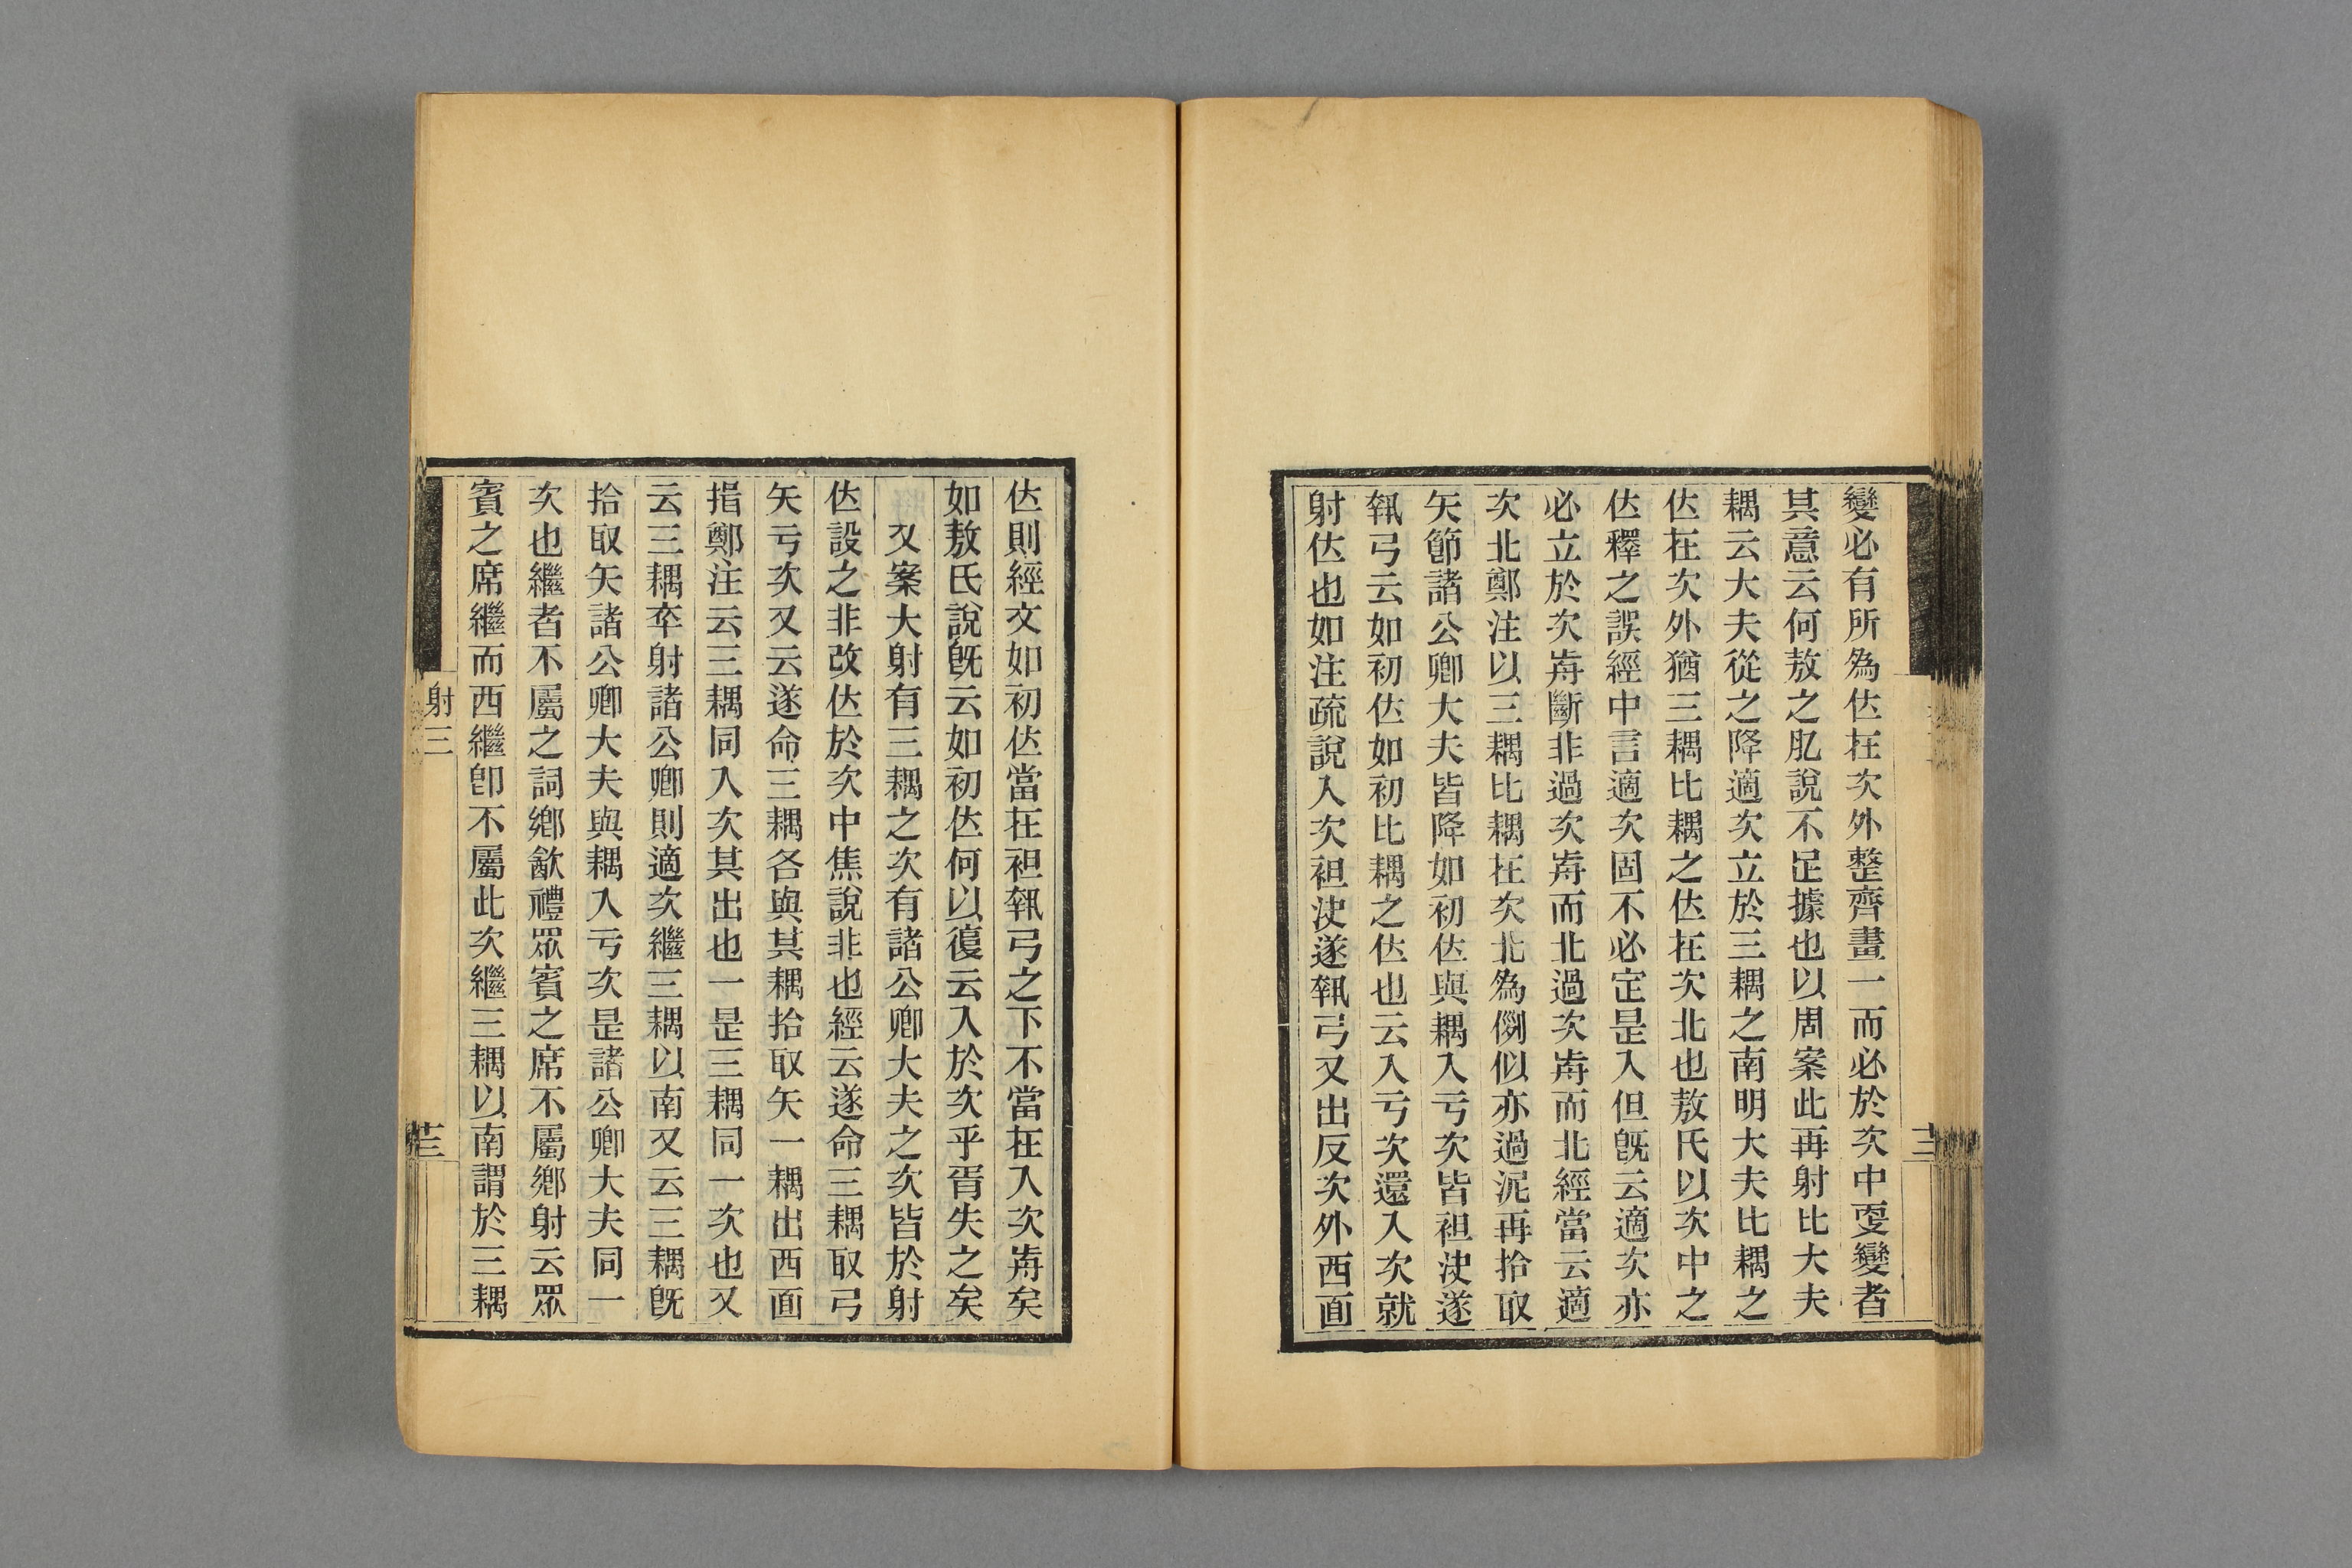 變必有所為位在次外整齊畫一而必於次中耍變者
其意云何敖之肊說不足據也以周案此再射比大夫
耦云大夫從之降適次立於三耦之南明大夫比耦之
位在次外猶三耦比耦之位在次北也敖氏以次中之
位釋之誤經中言適次固不必定是入但旣云適次亦
必立於次歬斷非過次歬而北過次歬而北經當云適
次北鄭注以三耦比耦在次北為例似亦過泥再拾取
矢節諸公卿大夫皆降如初位與耦入亏次皆袒決遂
執弓云如初位如初比耦之位也云入亏次還入次就
射位也如注疏說入次袒決遂執弓又出反次外西面
位則經文如初位當在袒執弓之下不當在入次歬矣
如敖氏說旣云如初位何以復云入於次乎胥失之矣
又案大射有三耦之次有諸公卿大夫之次皆於射
位設之非改位於次中焦說非也經云遂命三耦取弓
矢亏次又云遂命三耦各與其耦拾取矢一耦出西面
揖鄭注云三耦同入次其出也一是三耦同一次也又
云三耦卒射諸公卿則適次繼三耦以南又云三耦旣
拾取矢諸公卿大夫與耦入亏次是諸公卿大夫同一
次也繼者不屬之詞鄉歙禮眾賓之席不屬鄉射云眾
賓之席繼而西繼卽不屬此次繼三耦以南謂於三耦
射三